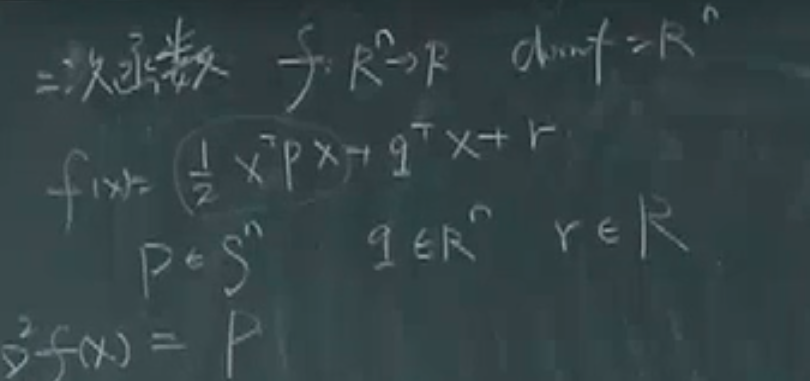 二次函数 f: Rⁿ→R domf = Rⁿ
f(x)= ½ xᵀPx + qᵀx + r
P ∈ Sⁿ q ∈ Rⁿ r ∈ R
∇²f(x) = P